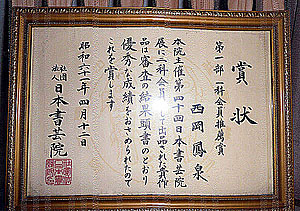 賞状
第一部二科会員推薦賞
西岡鳳泉
本院主催第四十回日本書芸院
展に二科 として出品された貴作
品は審査の結果頭書のとおり
優秀な成績をおさめられたので
これを賞します
昭和六十一年四月十二日
社団法人 日本書芸院